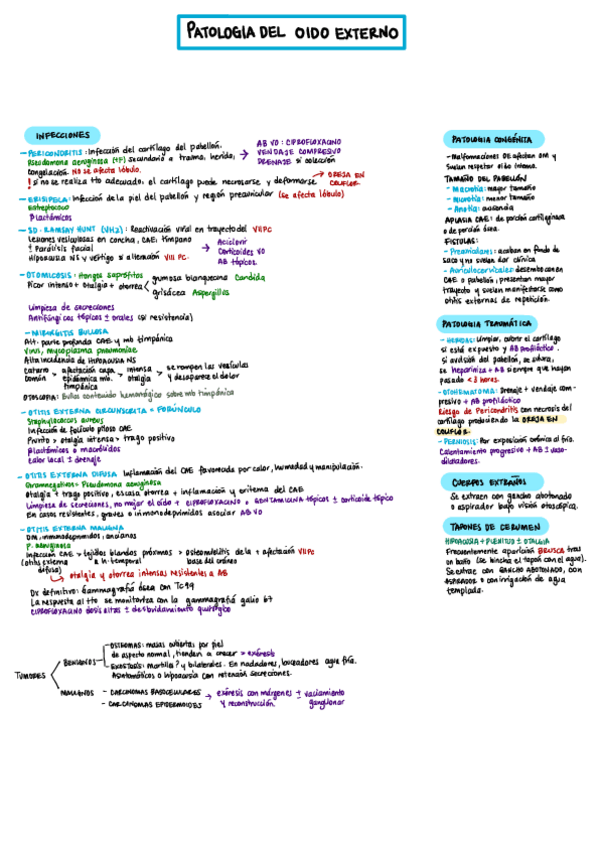 PATOLOGIA DEL OIDO EXTERNO
INFECCIONES
- PERICONDRITIS: Infección del cartílago del pabellón.
Pseudomona aeruginosa (+F) secundario a trauma, herida,
congelación. NO se afecta lóbulo.
! si no se realiza tto adecuado, el cartílago puede necrosarse y deformarse → OREJA EN
COLIFLOR
→ AB VO: CIPROFLOXACINO
VENDAJE COMPRESIVO
DRENAJE si colección
- ERISIPELA: Infección de la piel del pabellón y región preauricular (se afecta lóbulo)
Estreptococo
βlactámicos
- SD. RAMSAY HUNT (VHZ): Reactivación viral en trayecto del VII PC
Lesiones vesiculosas en concha, CAE, tímpano
± Parálisis facial
Hipoacusia NS y vértigo si alteración VIII PC.
→ Aciclovir
Corticoides VO
AB tópicos.
- OTOMICOSIS: Hongos saprófitos
Picor intenso + otalgia + otorrea
grumosa blanquecina Candida
grisácea Aspergillus
Limpieza de secreciones
Antifúngicos tópicos ± orales (si resistencia)
- MIRINGITIS BULLOSA
Alt. parte profunda CAE y mb timpánica
Virus, mycoplasma pneumoniae
Alta incidencia de HIPOACUSIA NS
catarro común > afectación capa epidérmica mb. timpánica > intensa otalgia > se rompen las vesículas y desaparece el dolor
OTOSCOPIA: Bullas contenido hemorrágico sobre mb timpánica
- OTITIS EXTERNA CIRCUNSCRITA = FORÚNCULO
Staphylococcus aureus
Infección de folículo piloso CAE
Prurito > otalgia intensa > trago positivo
βlactámicos o macrólidos
calor local ± drenaje
- OTITIS EXTERNA DIFUSA Inflamación del CAE favorecida por calor, humedad y manipulación.
Gramnegativos = Pseudomona aeruginosa
Otalgia + trago positivo, escasa otorrea + inflamación y eritema del CAE
Limpieza de secreciones, no mojar el oído + CIPROFLOXACINO o GENTAMICINA tópicos ± corticoide tópico
En casos resistentes, graves o inmunodeprimidos asociar AB VO
- OTITIS EXTERNA MALIGNA
DM, inmunodeprimidos, ancianos
P. aeruginosa
Infección CAE (otitis externa difusa) > tejidos blandos próximos a ln. temporal > osteomielitis de la base del cráneo + afectación VII PC
→ otalgia y otorrea intensas resistentes a AB
Dx definitivo: Gammagrafía ósea con Tc99
La respuesta al tto se monitoriza con la gammagrafía galio 67
CIPROFLOXACINO dosis altas ± desbridamiento quirúrgico
TUMORES
BENIGNOS
- OSTEOMAS: masas cubiertas por piel
de aspecto normal, tienden a crecer > exéresis
- EXOSTOSIS: martillos? y bilaterales. En nadadores, buceadores agua fría.
Asintomáticos o hipoacusia con retención secreciones.
MALIGNOS
- CARCINOMAS BASOCELULARES
- CARCINOMAS EPIDERMOIDES
→ exéresis con márgenes ± vaciamiento
y reconstrucción. ganglionar
PATOLOGIA CONGÉNITA
- Malformaciones OE afectan OM y
suelen respetar oído interno.
TAMAÑO DEL PABELLÓN
- Macrotia: mayor tamaño
- Microtia: menor tamaño
- Anotia: ausencia
APLASIA CAE: de porción cartilaginosa
o de porción ósea.
FISTULAS:
- Preauriculares: acaban en fondo de
saco y no suelen dar clínica
- Auriculocervicales: desembocan en
CAE o pabellón; presentan mayor
trayecto y suelen manifestarse como
otitis externas de repetición.
PATOLOGIA TRAUMÁTICA
- HERIDAS: Limpiar, cubrir el cartílago
si está expuesto y AB profiláctico.
Si avulsión del pabellón, se sutura,
se hepariniza + AB siempre que hayan
pasado < horas.
- OTOHEMATOMA: Drenaje + vendaje com-
presivo + AB profiláctico
Riesgo de Pericondritis con necrosis del
cartílago produciendo la OREJA EN
COLIFLOR.
- PERNIOSIS: Por exposición crónica al frío.
Calentamiento progresivo + AB ± vaso-
dilatadores.
CUERPOS EXTRAÑOS
Se extraen con gancho abotonado
o aspirador bajo visión otoscópica.
TAPONES DE CERUMEN
HIPOACUSIA + PLENITUD ± OTALGIA
Frecuentemente aparición BRUSCA tras
un baño (se hincha el tapón con el agua).
Se extrae con GANCHO ABOTONADO, con
ASPIRADOR o con irrigación de agua
templada.